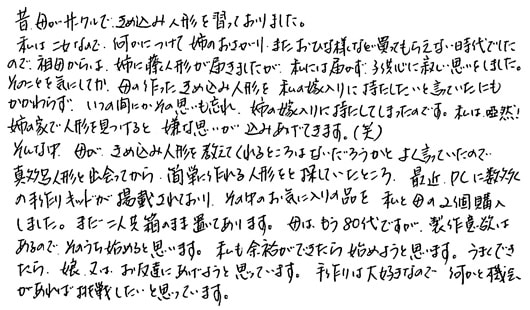 昔、母がサークルで、きめ込み人形を習っておりました。
私は二女なので、何かにつけて姉のおさがり、またおひな様など買ってもらえない時代でした
ので、祖母からは、姉に藤人形が届きましたが、私には届かず、子供心に寂しい思いをしました。
そのことを気にしてか、母の作ったきめ込み人形を私の嫁入りに持たしたいと言っていたにも
かかわらず、いつの間にかその思いも忘れ、姉の嫁入りに持たしてしまったのです。私は唖然!
姉の家で人形を見つけると嫌な思いが込みあげてきます。(笑)
そんな中、母が、きめ込み人形を教えてくれるところはないだろうかとよく言っていたので
真多呂人形と出会ってから、簡単に作れる人形をと探していたところ、最近、PCに数多く
の手作りキットが掲載されており、その中のお気に入りの品を私と母の2個購入
しました。まだ二人共箱のまま置いてあります。母はもう80代ですが、製作意欲は
あるので、そのうち始めると思います。私も余裕ができたら始めようと思います。うまくでき
たら、娘、又は、お友達にあげようと思っています。手作りは大好きなので何かと機会
があれば挑戦したいと思っています。